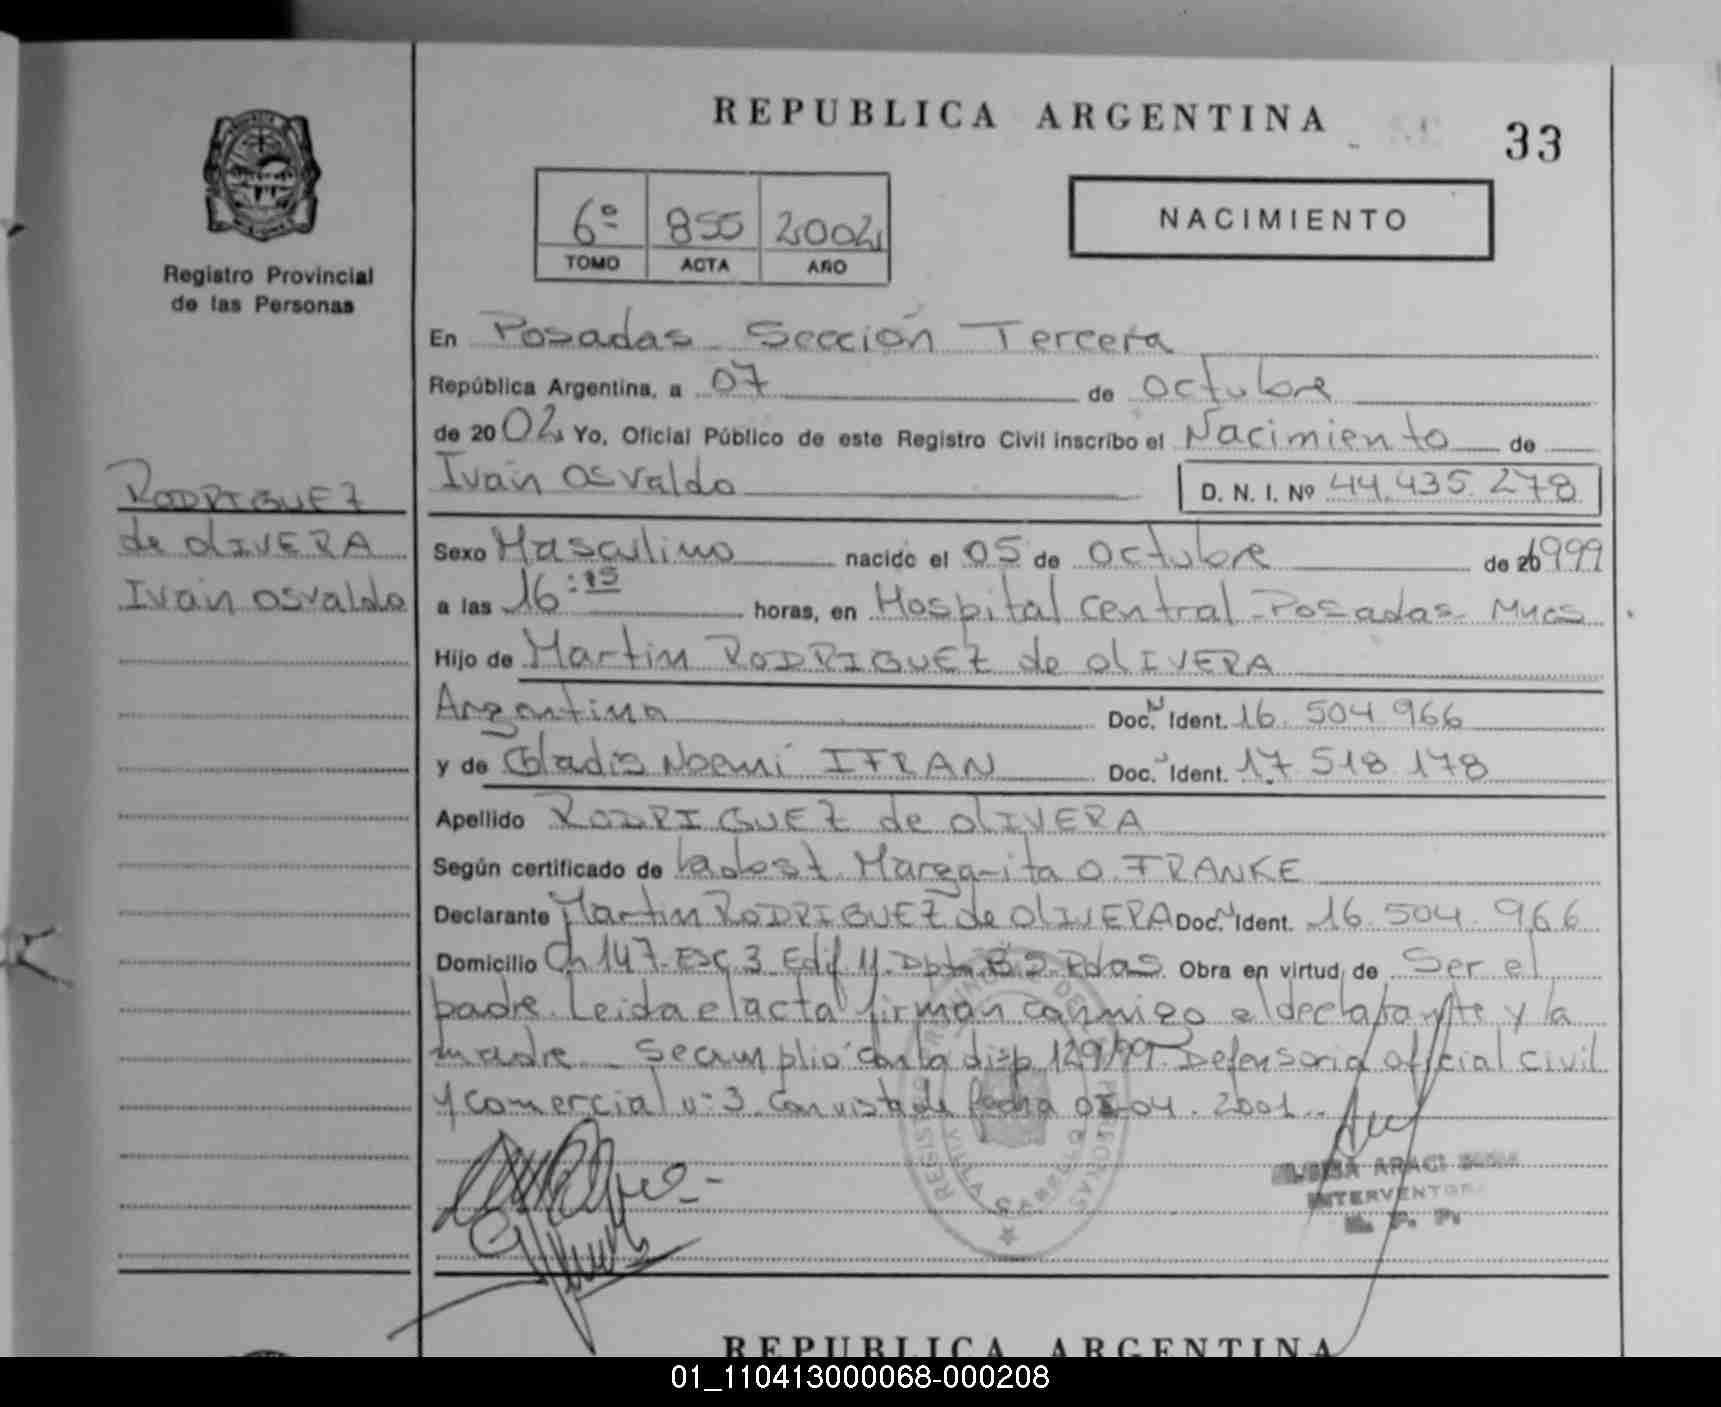 REPUBLICA ARGENTINA
33
6º 855 2002
TOMO ACTA AÑO
NACIMIENTO
Registro Provincial
de las Personas
En Posadas Sección Tercera
República Argentina, a 07 de octubre
de 2002 Yo, Oficial Público de este Registro Civil inscribo el Nacimiento de
Ivan Osvaldo D. N. I. Nº 44.435.278
RODRIGUEZ
de OLIVERA
Ivan Osvaldo
Sexo Masculino nacido el 05 de octubre de 1999
a las 16:15 horas, en Hospital Central Posadas Mnes
Hijo de Martin RODRIGUEZ de OLIVERA
Argentino Doc. Ident. 16.504.966
y de Gladis Noemi IFRAN Doc. Ident. 17.518.178
Apellido RODRIGUEZ de OLIVERA
Según certificado de Margarita O. FRANKE
Declarante Martin RODRIGUEZ de OLIVERA Doc. Ident. 16.504.966
Domicilio Ch 147 Esc 3 Edif 11 Dpto B Pdas. Obra en virtud de Ser el
padre. Leida el acta firman conmigo el declarante y la
madre - Se cumplio con la disp 129/99 Defensoria oficial civil
y comercial nº 3 con vista de fecha 04. 2001.
REGISTRO PROVINCIAL DE LAS PERSONAS
ARACI
INTERVENTORA
R. P. P.
REPUBLICA ARGENTINA
01_110413000068-000208